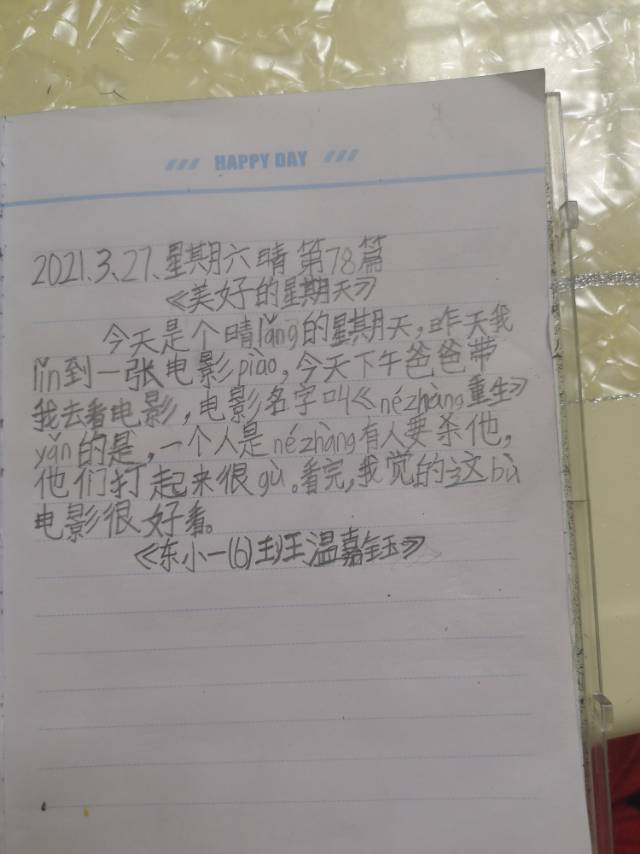 HAPPY DAY
2021.3、27、星期六 晴 第78篇
《美好的星期天》
今天是个晴lǎng的星期天，昨天我
lǐn到一张电影piào，今天下午爸爸带
我去看电影，电影名字叫《nézhàng重生》
yǎn的是，一个人是nézhàng有人要杀他，
他们打起来很gù。看完，我觉的这bù
电影很好看。
《东小一(6)班温嘉钰》